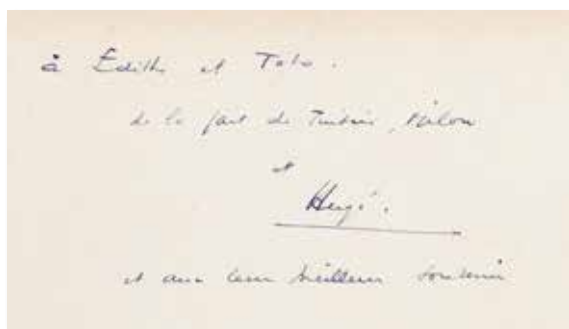 à Edith et Toto.
de la part de Tintin, Milou
et
Hergé.
et avec leur meilleur souvenir